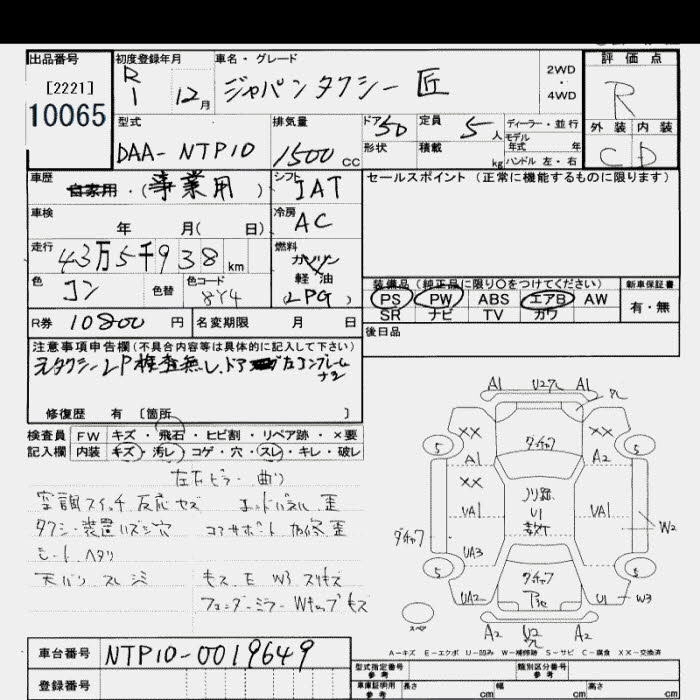 出品番号
[2221]
10065
初度登録年月
R1 12月
車名・グレード
ジャパンタクシー 匠
2WD
・
4WD
評価点
R
外装 内装
C D
型式
DAA-NTP10
排気量
1500 cc
ドア 5D
形状
定員 5人
積載 kg
ディーラー・並行
モデル年式 年
ハンドル 左・右
車歴
自家用・(事業用)
シフト
IAT
セールスポイント(正常に機能するものに限ります)
車検
年 月(日)
冷房
AC
走行
43万5千938 km
燃料
ガソリン
軽油
(LPG)
色
コン
色替
色コード
8Y4
装備品(純正品に限り○をつけてください)
PS PW ABS エアB AW
SR ナビ TV カワ
新車保証書
有・無
R券 10800円
名変期限 月 日
後日品
注意事項申告欄(不具合内容等は具体的に記入して下さい)
元タクシー LP検査無し、ドア 左コンフレーム
ナシ
修復歴 有 [箇所 ]
検査員記入欄
FW キズ・飛石・ヒビ割・リペア跡・×要
内装 キズ・汚レ・コゲ・穴・スレ・キレ・破レ
左右ピラー曲り
空調スイッチ反応セズ
タクシー装置ハズシ穴 コアサポート 歪
シートヘタリ
天バリ スレ シミ
モス E W3 スリキズ
フェンダーミラー Wキャップキズ
A1 U2 A1
XX XX
タッチャフ
5 5
A1 A2
ノリ跡
UA1 U1 UA1
ダチャフ W2
UA3
タッチャフ
5 5
UA2 U1 W3
スペア
A2 U2 A2
A-キズ E-エクボ U-凹み W-補修跡 S-サビ C-腐食 XX-交換済
車台番号 NTP10-0019649
登録番号
型式指定番号 参考
類別区分番号 参考
車庫証明用 参考 長さ cm 幅 cm 高さ cm